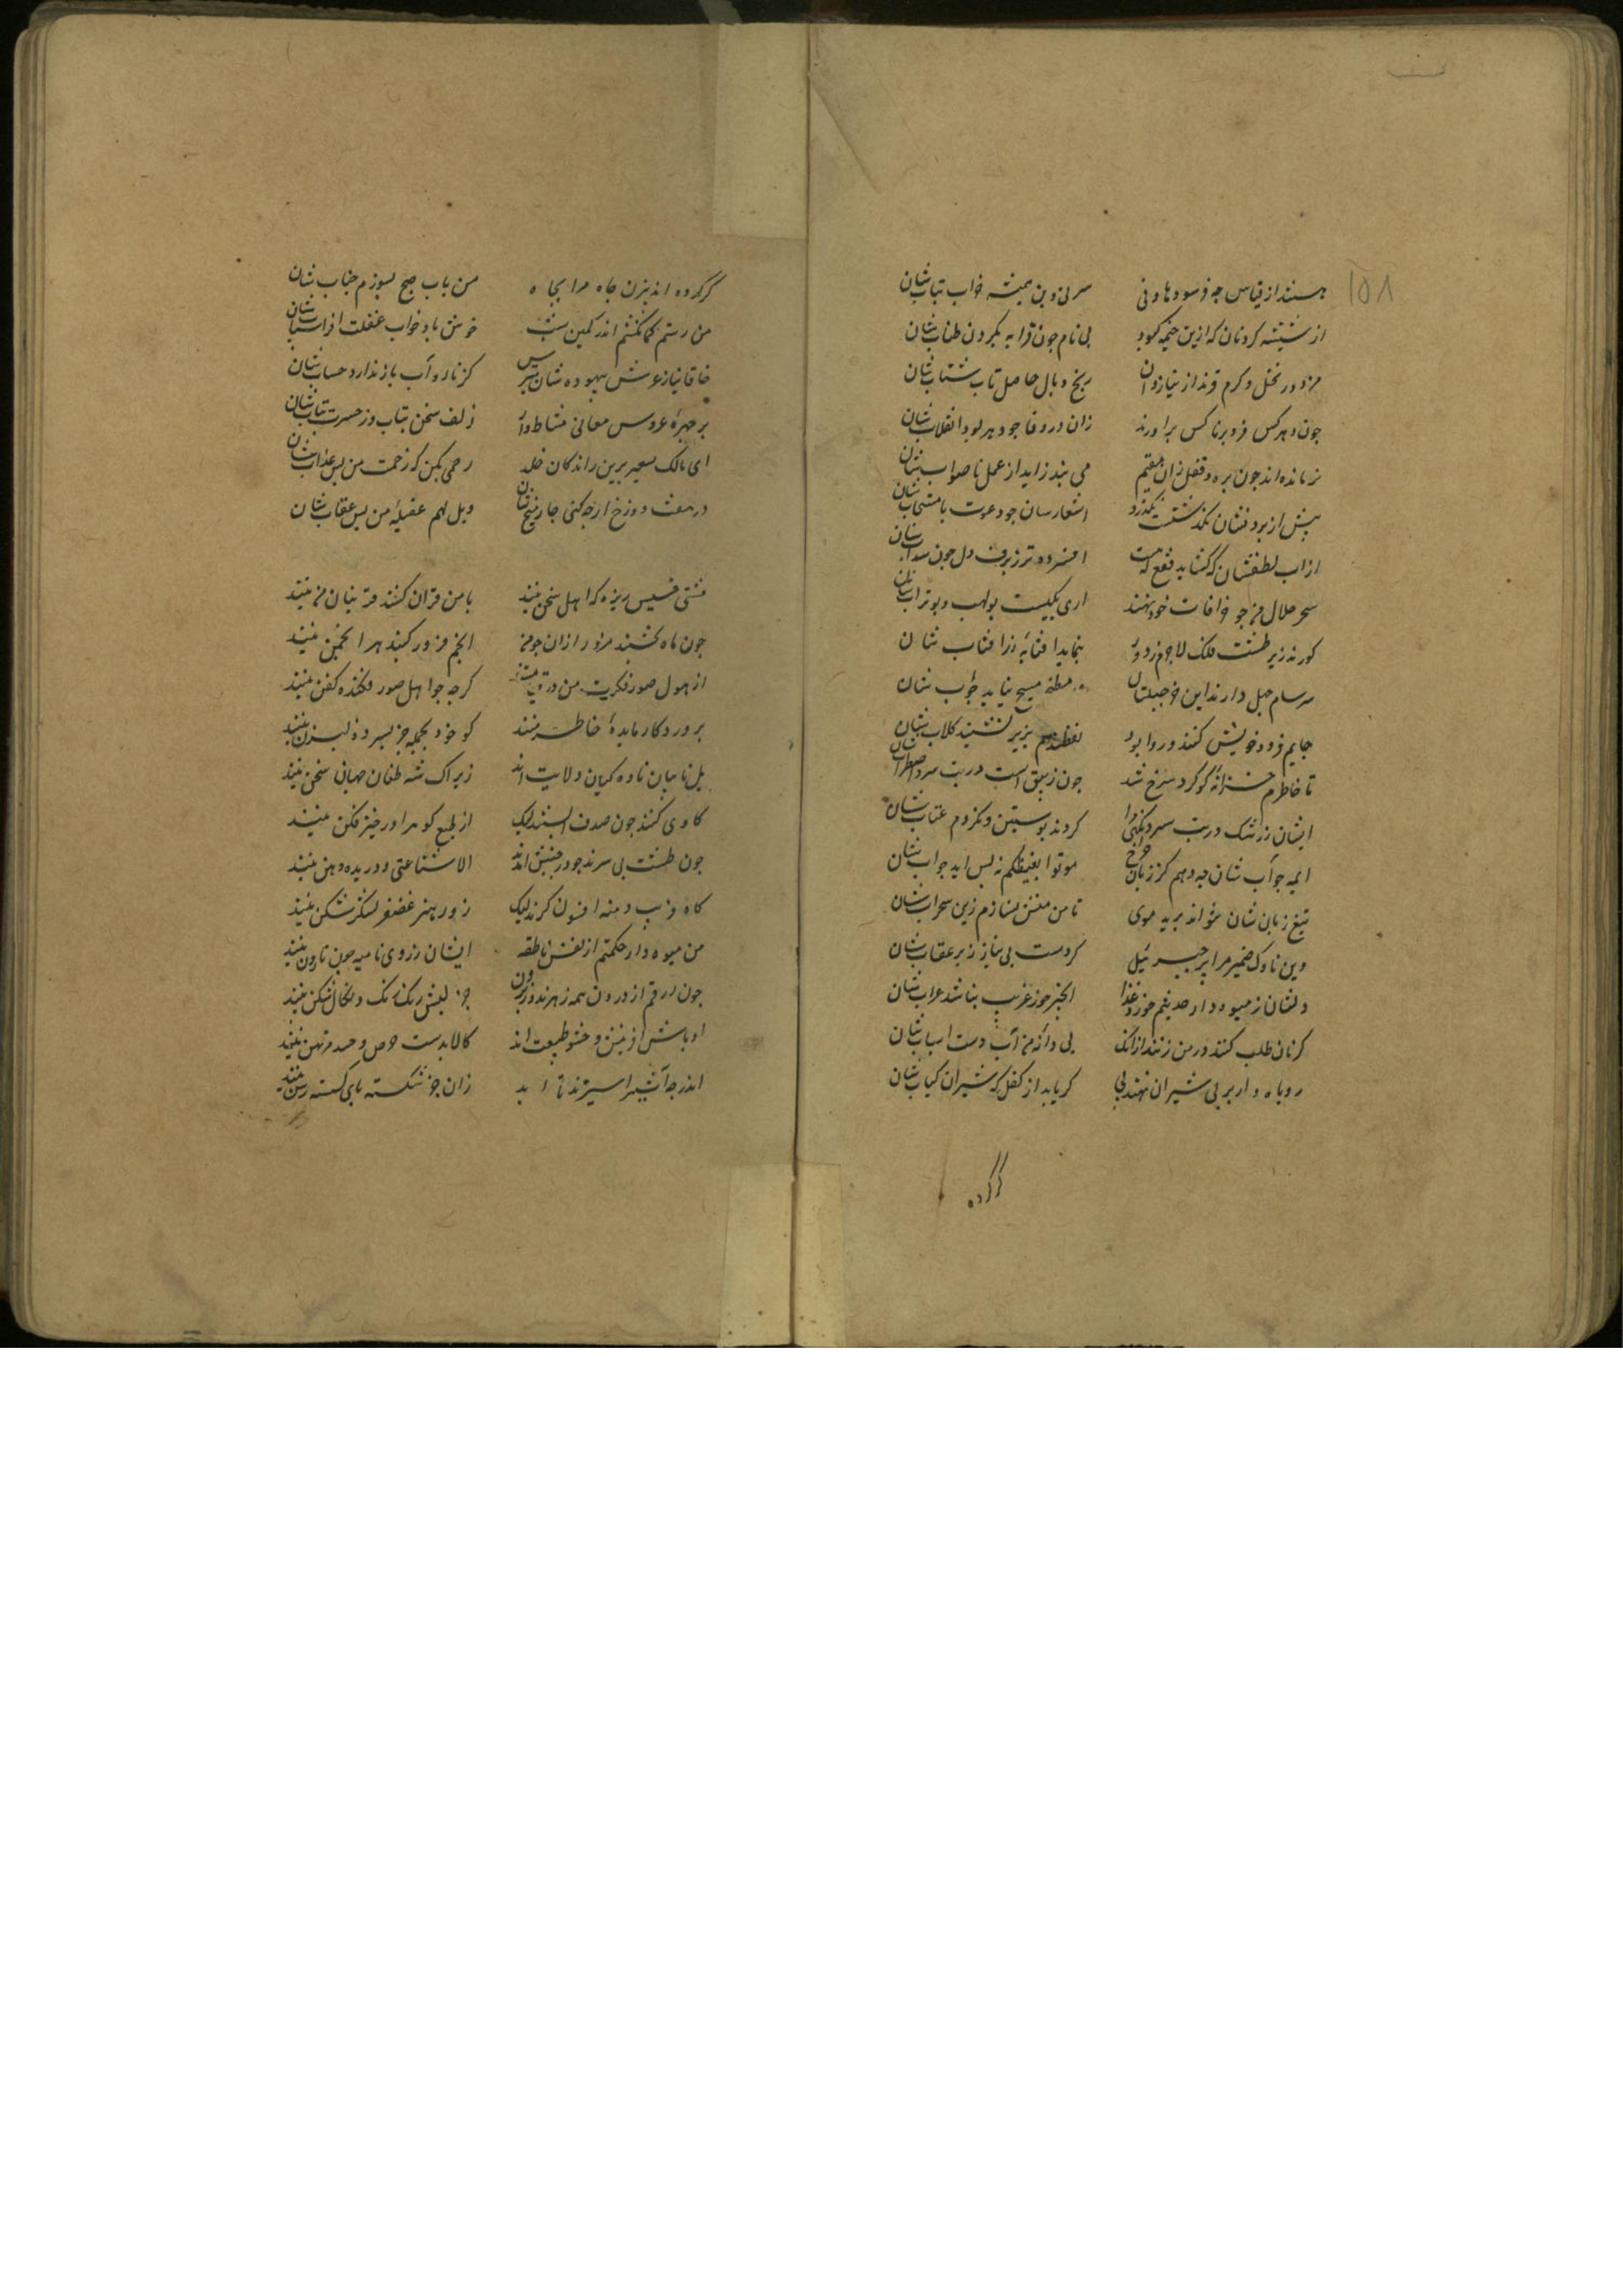 ۱۵۸
هستند از قیاس چو فرسوده هاونی سر نی و بن همیشه خراب تباب شان
از شیشه گردنان که ازین خیمه کبود بی نام چون قرابه بگردن طناب شان
مزدور بخل و کرم قزند از نیاز و آن رنج و بال حاصل تاب شتاب شان
چون دهر کس فرو بر ناکس براورند زان در وفا چو دهر بود انقلاب شان
نر مانده اند چون بره و قفل زان مقیم می بند زاید از عمل ناصواب شان
پیش از بروتشان نگذشتست نگذرد اشعارسان چو دعوت نامستجاب شان
از اب لطفشان که گشاید فقع که هست افسرده تر ز برف دل چون سداب شان
سحر حلال من چو خرافات خود نهند اری یکیست بولهب و بوتراب شان
کورند زیر طشت فلک لاجرم ز دور بنماید افتابه زر افتاب شان
سرسام جهل دارند این خرجبلتان مطبخ مسیح نیاید جواب شان
جایم فرود خویش کنند و روا بود نفطند هم بزیر نشیند گلاب شان
تا خاطرم خزانه گوگرد سرخ شد چون زیبق است در تب سرد اضطراب شان
ایشان ز رشک در تب سرد و نکی مرا کردند پوستین و نکردم عتاب شان
ایمه جواب شان چه دهم کز زبان چرخ موتوا بغیظکم نه بس اید جواب شان
تیغ زبان شان نتواند برید موی تا من مغسن نسازم زین سحراب شان
وین ناوک ضمیر مرا پر جبرئیل کردست بی نیاز ز پر عقاب شان
دلشان ز میوه دار حدیثم خورد غذا انجیر خور غریب نباشد غراب شان
گر نان طلب کنند در من زنند ازانک بی دانه من آب دست اسیاب شان
روباه وار بر پی شیران نهند پی گر یابد از کفل که شیران کباب شان
گر کرده
گر کرده اند بیژن جاه مرا بچاه من باب صبح بسوزم جناب شان
من رستم کمانکشم اندر کمین شب خوش باد خواب غفلت افراسیاب شان
خاقانیا ز غرش بیهوده شان مترس کز نار و آب باز ندارد حساب شان
بر چهره عروس معانی مشاطه وار زلف سخن بتاب و ز حسرت بتاب شان
ای مالک سعیر برین راندگان خلد رحمی بکن که زحمت من بس عذاب شان
در هفت دوزخ ارچه کنی چار میخ شان ویل لهم عقیله من بس عقاب شان
مشتی خسیس ریزه که اهل سخن نیند با من قران کنند و قرینان من نیند
چون ماه نخشبند مزور ازان چو من انجم فروز گنبد هر انجمن نیند
از هول صور فکرت من در قیامتند گرچه چو اهل صور فکنده کفن نیند
پروردگار مایده خاطر منند گو خود بجمله جز پسر ذو الیزن نیند
بل نایبان ناده کیان ولایت اند زیراک شه طغان جهان سخن نیند
گاوی کنند چون صدف البستند لیک از طبع گوهراور خیز فکن نیند
چون طشت بی سرند چو در جنبش امدند الا شناعتی و دریده دهن نیند
گاه فریب دمنه افسون گرند لیک زور هنر غضنفر لشکر شکن نیند
من میوه دار حکمتم از نفس ناطقه ایشان ز روی نامیه چون نارون نیند
چون ارقم از درون همه زهرند و ز برون جز بیش رنگ رنگ و شکال شکن نیند
اوباش افرینش و حشو طبیعت اند کالا بدست حرص و حسد مرتهن نیند
اندر چه اثیر اسیرند تا ابد زان جز شکسته پای گسسته رسن نیند